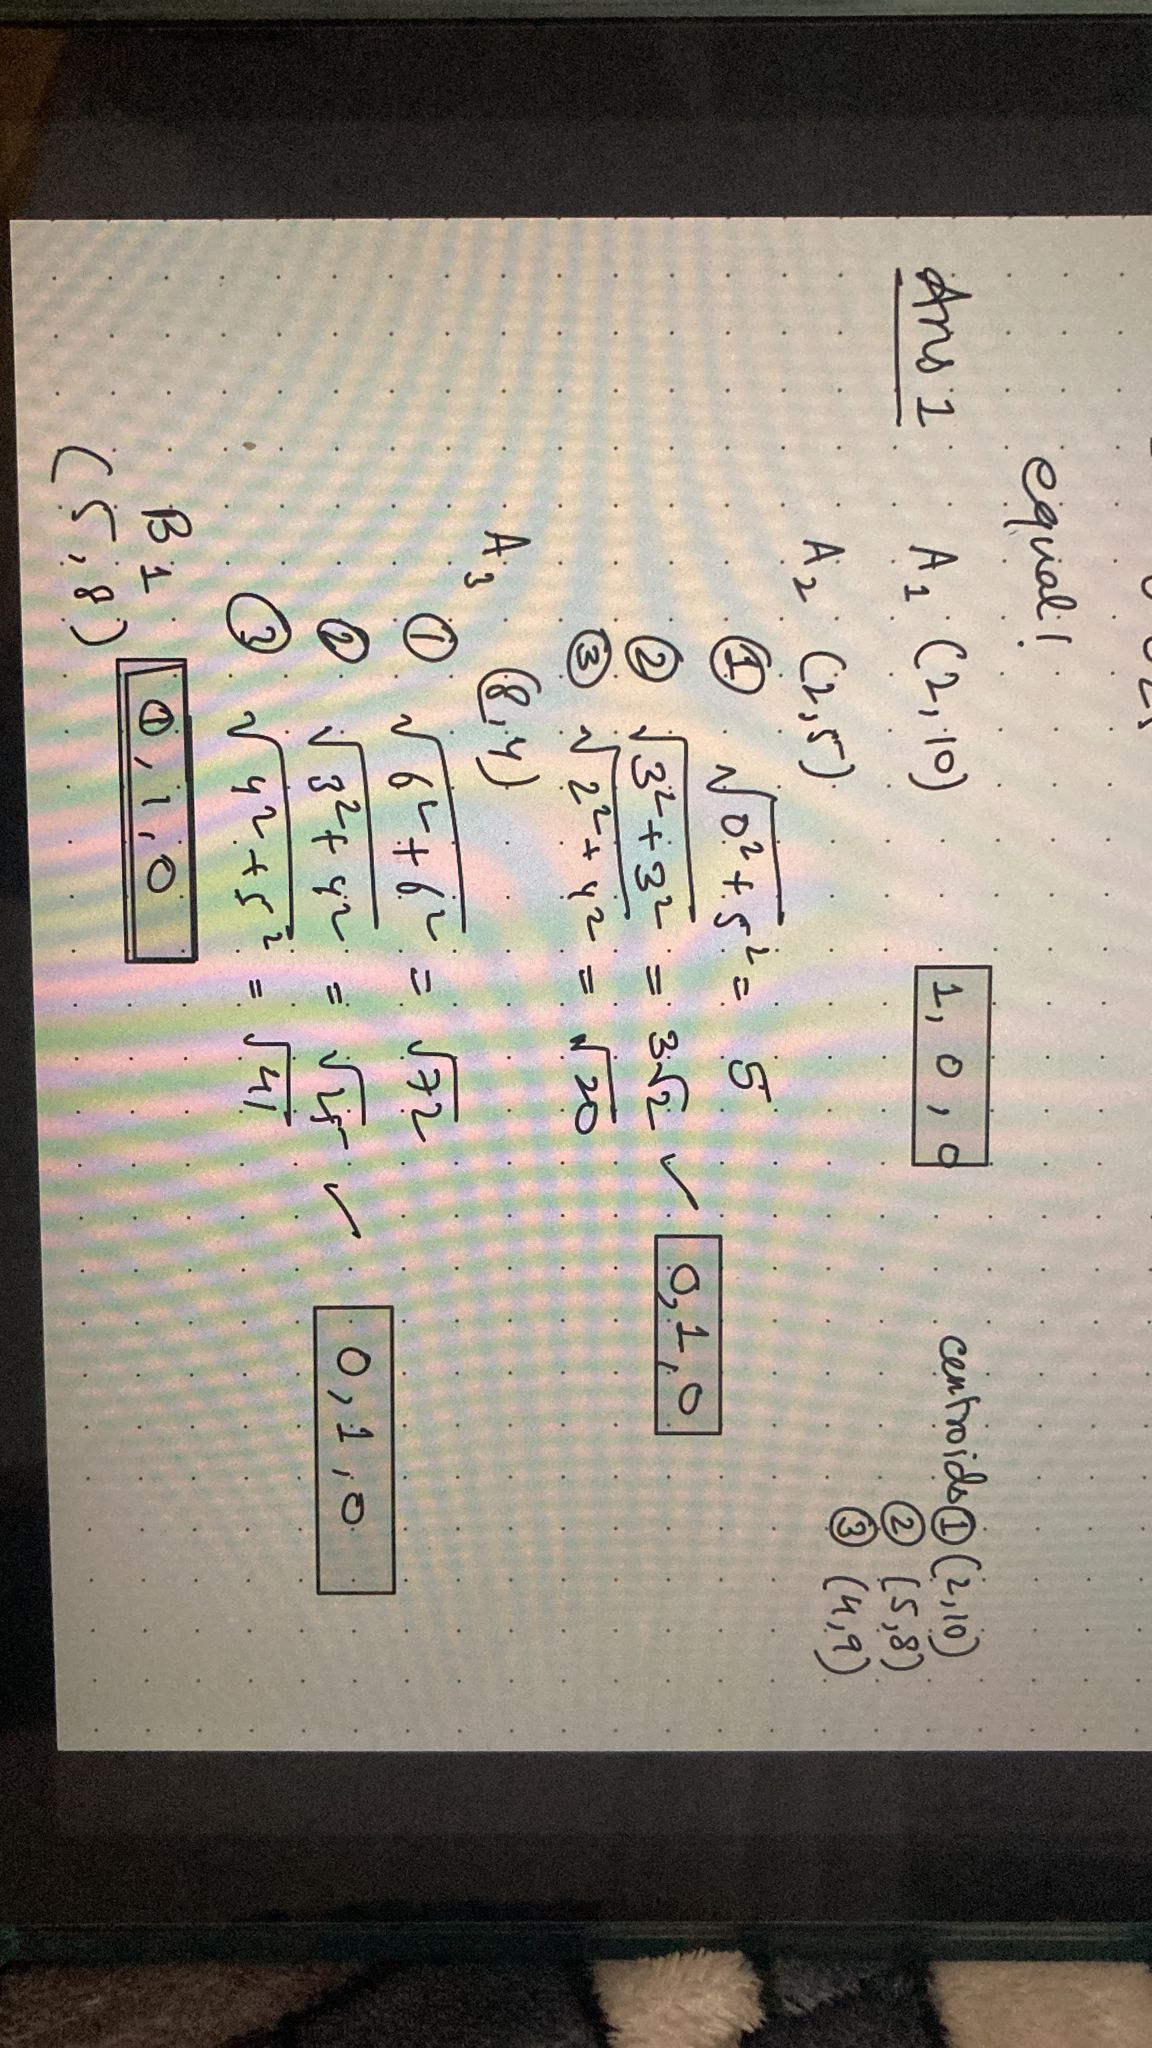 equal!
Ans 1 A1 (2,10) 1, 0, 0 centroids ① (2,10)
② (5,8)
A2 (2,5) ③ (4,9)
① √0²+5² = 5
② √3²+3² = 3√2 ✓ 0,1,0
③ √2²+4² = √20
A3 (8,4)
① √6²+6² = √72
② √3²+4² = √25 ✓ 0,1,0
③ √4²+5² = √41
B1 0,1,0
(5,8)